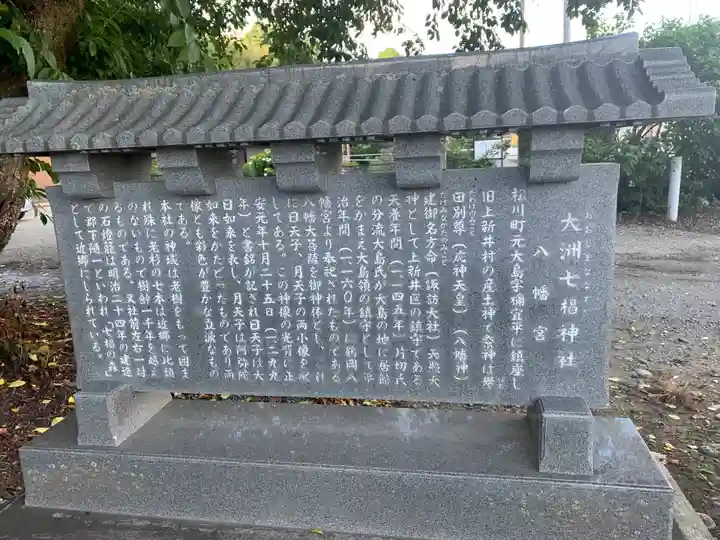 おおしまななすぎ
大洲七椙神社
八幡宮
松川町元大島字禰宜平に鎮座し
旧上新井村の産土神で祭神は誉
田別尊（応神天皇）（八幡神）
建御名方命（諏訪大社）
神として上新井区の鎮守である
天養年間（一一四五年）片切氏
の分流大島氏が大島の地に居館
をかまえ大島領の鎮守として
治年間（一一六〇年）に鶴岡八
幡宮より奉祀されたものである
八幡大菩薩を御神体とし、
に日天子、月天子の両小像を配
してある。この神像の光背に正
安元年十月二十五日（一二九九
年）と書銘が記され日天子は大
日如来を表し、月天子は阿弥陀
如来をかたどったものであり両
像とも彩色が豊かな立派なもの
である。
本社の神域は老樹をもって囲ま
れ殊に老杉の七本は近郷に比類
のないもので樹齢一千年を越え
るものである。又社前左右一対
の石燈籠は明治二十四年の建造
で郡下随一といわれ、「七椙の森」
として近郷にしられている。